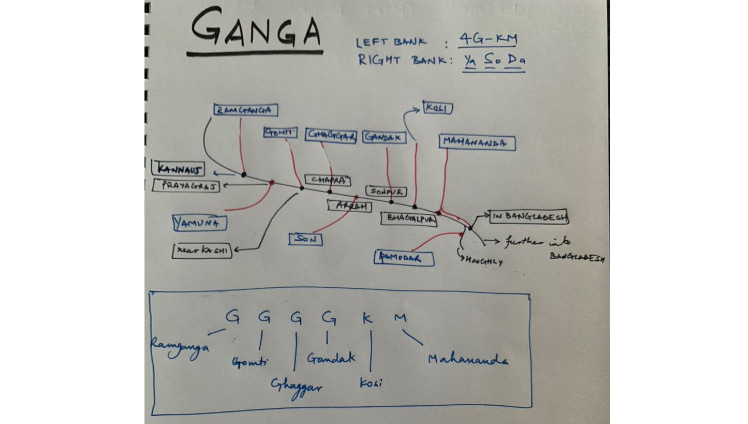 GANGA
LEFT BANK : 4G-KM
RIGHT BANK : Ya So Da
RAMGANGA
KOSI
GOMTI
GHAGGAR
GANDAK
MAHANANDA
KANNAUJ
CHAPRA
PRAYAGRAJ
SONPUR
ARRAH
BHAGALPUR
IN BANGLADESH
YAMUNA
SON
further into
BANGLADESH
near KASHI
DAMODAR
HOOGHLY
G G G G K M
Ramganga
Gomti
Gandak
Mahananda
Ghaggar
Kosi